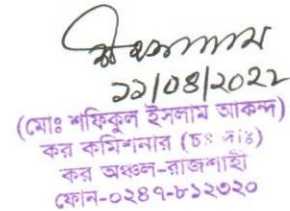 ১১/০৪/২০২২
(মোঃ শফিকুল ইসলাম আকন্দ)
কর কমিশনার (চঃ দাঃ)
কর অঞ্চল-রাজশাহী
ফোন-০২৪৭-৮১২৩২০